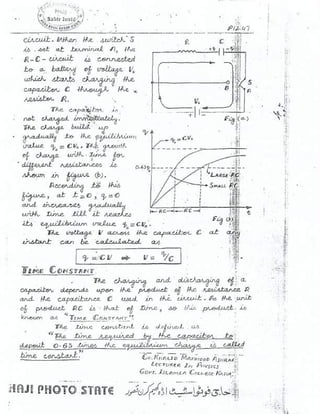 Sabir Javid
P12.47
circuit. When the switch S
is set at terminal A, the
R-C-circuit is connected
to a battery of voltage V₀
which starts charging the
capacitor C through the
resistor R.
The capacitor is
not charged immediately.
The charge build up
gradually to the equilibrium
value q₀ = CV₀. The growth
of charge with time for
different resistances is
shown in figure (b).
According to this
figure, at t = 0, q = 0
and increases gradually
with time till it reaches
its equilibrium value q₀ = CV₀.
The voltage V across the capacitor C at any
instant can be calculated as
q = CV ⇒ V = q/C
R C
S
A
B
V₀
Fig (a)
q
q₀ = CV₀
0.63q₀
LARGE RC
SMALL RC
RC
RC
t
Fig (b)
TIME CONSTANT
The charging and discharging of a
capacitor depends upon the product of the resistance R
and the capacitance C used in the circuit. As the unit
of product RC is that of time, so this product is
known as "TIME CONSTANT".
The time constant is defined as
"The time required by the capacitor to
deposit 0.63 times the equilibrium charge is called
time constant."
C: KHALID
LECTURER IN PHYSICS
GOVT. ISLAMIA COLLEGE KASUR
HAJI PHOTO STATE
حاجی فوٹو سٹیٹ